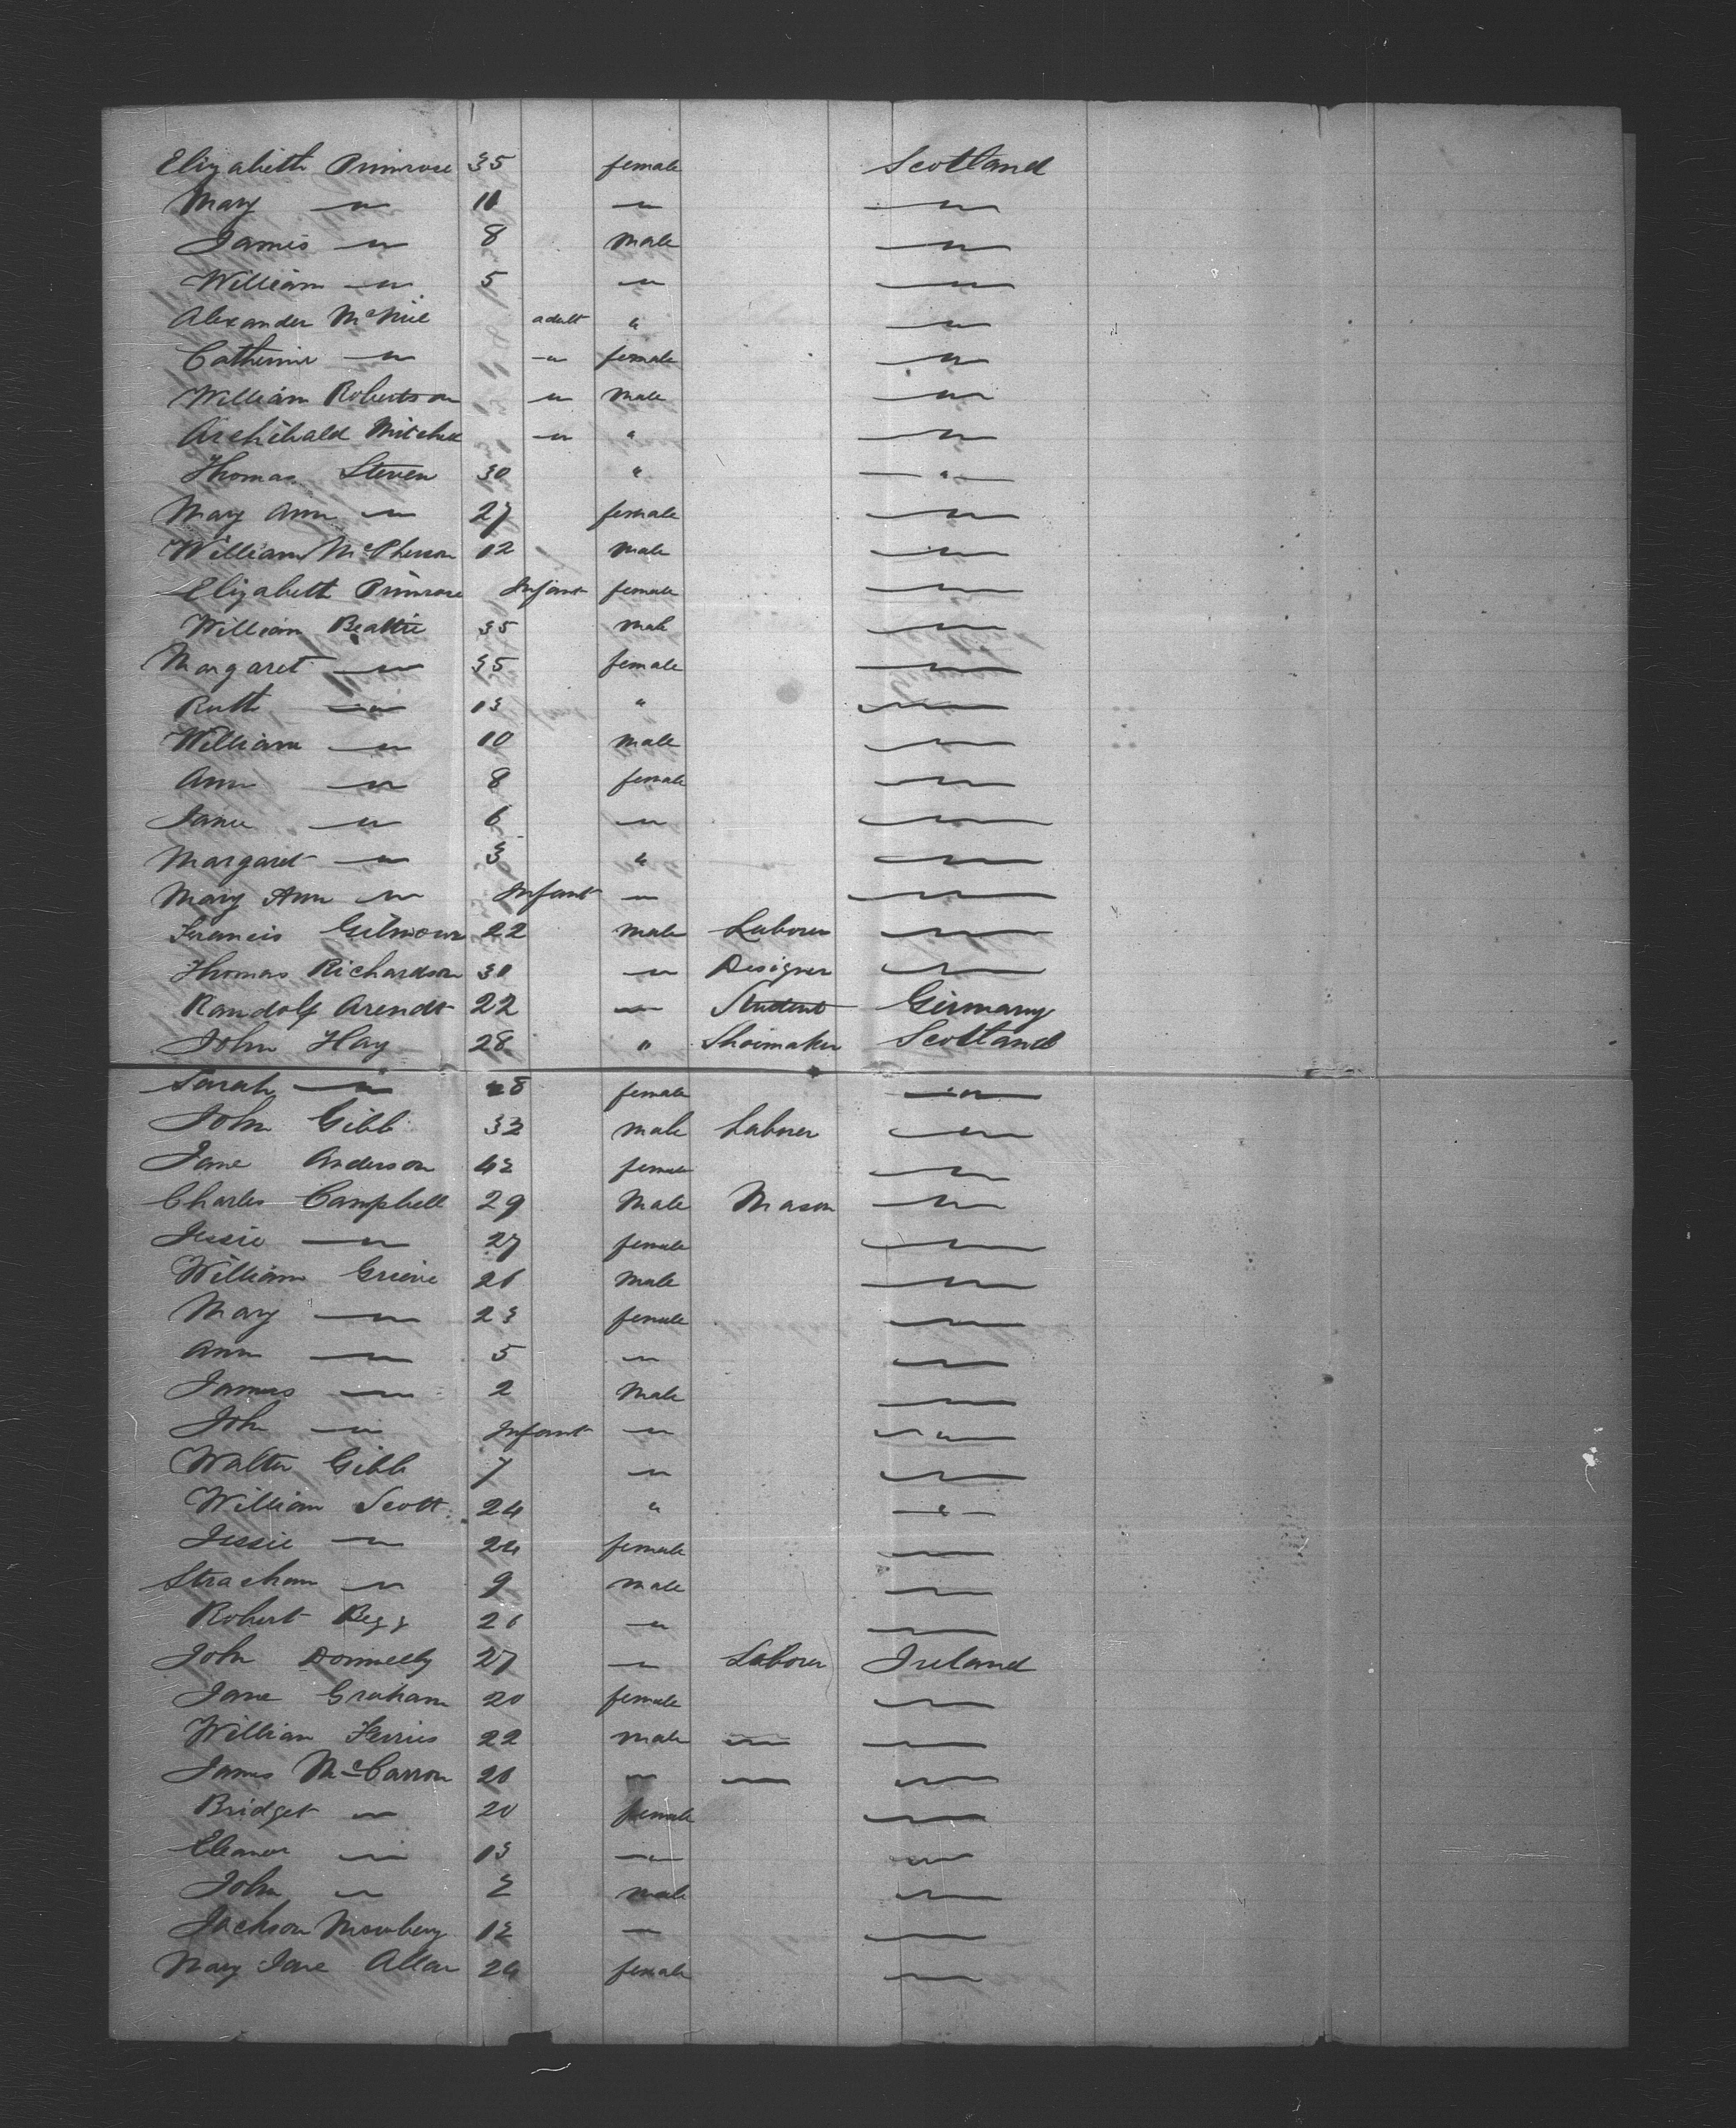 Elizabeth Primrose 35 female Scotland
Mary — " — 11 — " — — " —
James — " — 8 male — " —
William — " — 5 — " — — " —
Alexander McNeil adult " — " —
Catherine — " — — " female — " —
William Robertson — " — male — " —
Archibald Mitchell — " — " — " —
Thomas Steven 30 " — " —
Mary Ann — " — 27 female — " —
William McPherson 12 male — " —
Elizabeth Primrose Infant female — " —
William Beattie 35 male — " —
Margaret — " — 35 female — " —
Ruth — " — 13 " — " —
William — " — 10 male — " —
Ann — " — 8 female — " —
Jane — " — 6 — " — — " —
Margaret — " — 3 " — " —
Mary Ann — " — Infant — " — — " —
Francis Gilmour 22 male Laborer — " —
Thomas Richardson 30 — " — Designer — " —
Randolf Arendt 22 — " — Student Germany
John Hay 28 " Shoemaker Scotland
Sarah — " — 28 female — " —
John Gibb 32 male Laborer — " —
Jane Anderson 42 female — " —
Charles Campbell 29 Male Mason — " —
Jessie — " — 27 female — " —
William Grieve 26 Male — " —
Mary — " — 23 female — " —
Ann — " — 5 — " — — " —
James — " — 2 Male — " —
John — " — Infant — " — — " —
Walter Gibb 7 — " — — " —
William Scott 24 " — " —
Jessie — " — 24 female — " —
Strachan — " — 9 male — " —
Robert Begg 26 — " — — " —
John Donnelly 27 — " — Laborer Ireland
Jane Graham 20 female — " —
William Ferries 22 male — " — — " —
James McCarron 26 — " — — " — — " —
Bridget — " — 20 female — " —
Eleanor — " — 13 — " — — " —
John — " — 2 male — " —
Jackson 12 — " — — " —
Mary Jane Allan 24 female — " —